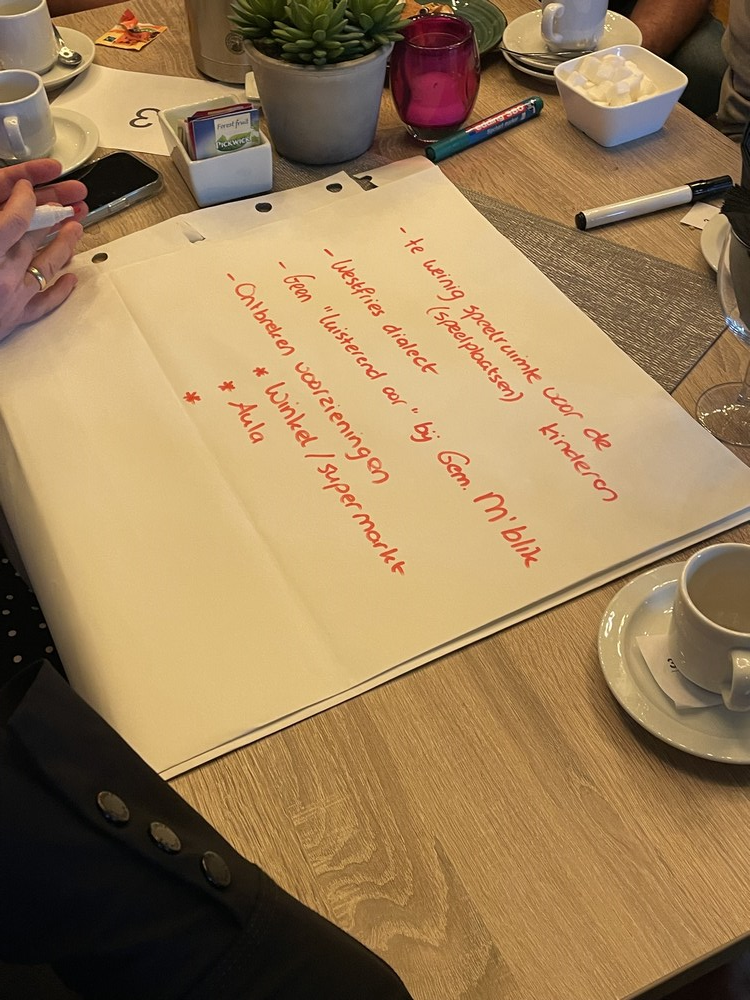 - te weinig speelruimte voor de
kinderen
(speelplaatsen)
- Westfries dialect
- Geen "luisterend oor" bij Gem. M'blik
- Ontbreken voorzieningen
* Winkel / supermarkt
* Aula
*
3
Forest fruit
PICKWICK
edding 380
3